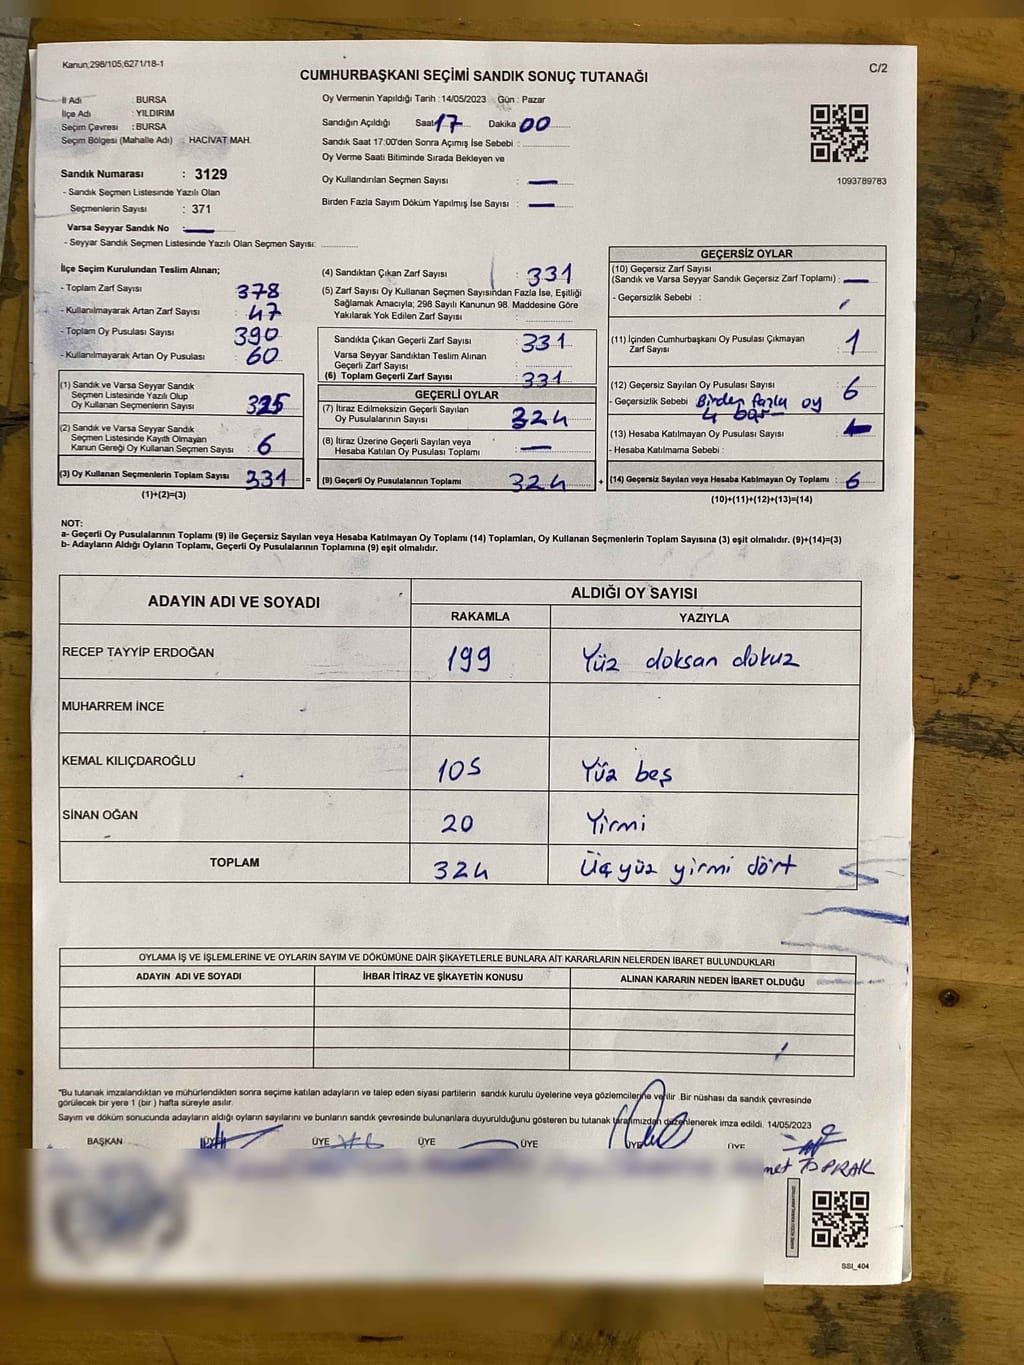 Kanun;298/105;6271/18-1
C/2
CUMHURBAŞKANI SEÇİMİ SANDIK SONUÇ TUTANAĞI
İl Adı : BURSA
İlçe Adı : YILDIRIM
Seçim Çevresi : BURSA
Seçim Bölgesi (Mahalle Adı) : HACİVAT MAH.
Sandık Numarası : 3129
- Sandık Seçmen Listesinde Yazılı Olan
Seçmenlerin Sayısı : 371
Varsa Seyyar Sandık No :
- Seyyar Sandık Seçmen Listesinde Yazılı Olan Seçmen Sayısı:
Oy Vermenin Yapıldığı Tarih : 14/05/2023 Gün : Pazar
Sandığın Açıldığı Saat 17 Dakika 00
Sandık Saat 17:00'den Sonra Açımış İse Sebebi :
Oy Verme Saati Bitiminde Sırada Bekleyen ve
Oy Kullandırılan Seçmen Sayısı : —
Birden Fazla Sayım Döküm Yapılmış İse Sayısı : —
1093789783
İlçe Seçim Kurulundan Teslim Alınan;
- Toplam Zarf Sayısı 378
- Kullanılmayarak Artan Zarf Sayısı : 47
- Toplam Oy Pusulası Sayısı 390
- Kullanılmayarak Artan Oy Pusulası 60
(1) Sandık ve Varsa Seyyar Sandık
Seçmen Listesinde Yazılı Olup
Oy Kullanan Seçmenlerin Sayısı 325
(2) Sandık ve Varsa Seyyar Sandık
Seçmen Listesinde Kayıtlı Olmayan
Kanun Gereği Oy Kullanan Seçmen Sayısı : 6
(3) Oy Kullanan Seçmenlerin Toplam Sayısı 331 =
(1)+(2)=(3)
(4) Sandıktan Çıkan Zarf Sayısı : 331
(5) Zarf Sayısı Oy Kullanan Seçmen Sayısından Fazla İse, Eşitliği
Sağlamak Amacıyla; 298 Sayılı Kanunun 98. Maddesine Göre
Yakılarak Yok Edilen Zarf Sayısı :
Sandıkta Çıkan Geçerli Zarf Sayısı : 331
Varsa Seyyar Sandıktan Teslim Alınan
Geçerli Zarf Sayısı :
(6) Toplam Geçerli Zarf Sayısı : 331
GEÇERLİ OYLAR
(7) İtiraz Edilmeksizin Geçerli Sayılan
Oy Pusulasının Sayısı : 324
(8) İtiraz Üzerine Geçerli Sayılan veya
Hesaba Katılan Oy Pusulası Toplamı : —
(9) Geçerli Oy Pusulalarının Toplamı 324 +
GEÇERSİZ OYLAR
(10) Geçersiz Zarf Sayısı
(Sandık ve Varsa Seyyar Sandık Geçersiz Zarf Toplamı) : —
- Geçersizlik Sebebi :
(11) İçinden Cumhurbaşkanı Oy Pusulası Çıkmayan
Zarf Sayısı : 1
(12) Geçersiz Sayılan Oy Pusulası Sayısı : 6
- Geçersizlik Sebebi Birden fazla oy
(13) Hesaba Katılmayan Oy Pusulası Sayısı :
- Hesaba Katılmama Sebebi :
(14) Geçersiz Sayılan veya Hesaba Katılmayan Oy Toplamı : 6
(10)+(11)+(12)+(13)=(14)
NOT:
a- Geçerli Oy Pusulalarının Toplamı (9) ile Geçersiz Sayılan veya Hesaba Katılmayan Oy Toplamı (14) Toplamları, Oy Kullanan Seçmenlerin Toplam Sayısına (3) eşit olmalıdır. (9)+(14)=(3)
b- Adayların Aldığı Oyların Toplamı, Geçerli Oy Pusulalarının Toplamına (9) eşit olmalıdır.
ADAYIN ADI VE SOYADI
ALDIĞI OY SAYISI
RAKAMLA YAZIYLA
RECEP TAYYİP ERDOĞAN 199 Yüz doksan dokuz
MUHARREM İNCE
KEMAL KILIÇDAROĞLU 105 Yüz beş
SİNAN OĞAN 20 Yirmi
TOPLAM 324 Üç yüz yirmi dört
OYLAMA İŞ VE İŞLEMLERİNE VE OYLARIN SAYIM VE DÖKÜMÜNE DAİR ŞİKAYETLERLE BUNLARA AİT KARARLARIN NELERDEN İBARET BULUNDUKLARI
ADAYIN ADI VE SOYADI İHBAR İTİRAZ VE ŞİKAYETİN KONUSU ALINAN KARARIN NEDEN İBARET OLDUĞU
*Bu tutanak imzalandıktan ve mühürlendikten sonra seçime katılan adayların ve talep eden siyasi partilerin sandık kurulu üyelerine veya gözlemcilerine verilir .Bir nüshası da sandık çevresinde
görülecek bir yere 1 (bir ) hafta süreyle asılır.
Sayım ve döküm sonucunda adayların aldığı oyların sayılarını ve bunların sandık çevresinde bulunanlara duyurulduğunu gösteren bu tutanak tarafımızdan düzenlenerek imza edildi. 14/05/2023
BAŞKAN ÜYE ÜYE ÜYE ÜYE ÜYE ÜYE
TOPRAK
SSI_404